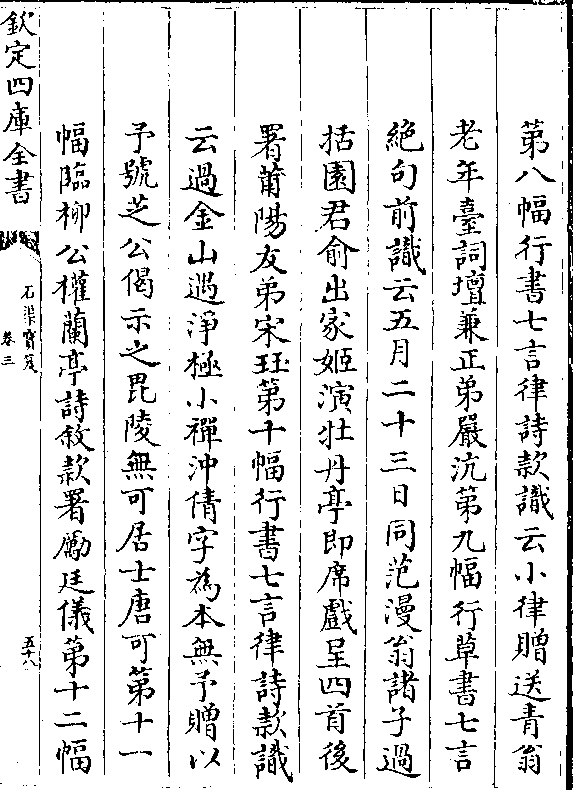 第八幅行書七言律詩款識云小律贈送青翁
老年臺詞壇兼正弟嚴沆第九幅行草書七言
絶句前識云五月二十三日同范漫翁諸子過
括園君俞出家姬演牡丹亭即席戲呈四首後
署莆陽友弟宋珏第十幅行書七言律詩款識
云過金山遇淨極小禪沖倩字為本無予贈以
予號芝公偈示之毘陵無可居士唐可第十一
幅臨柳公權蘭亭詩敘款署勵廷儀第十二幅
欽定四庫全書
石渠寳笈
卷三
五十八